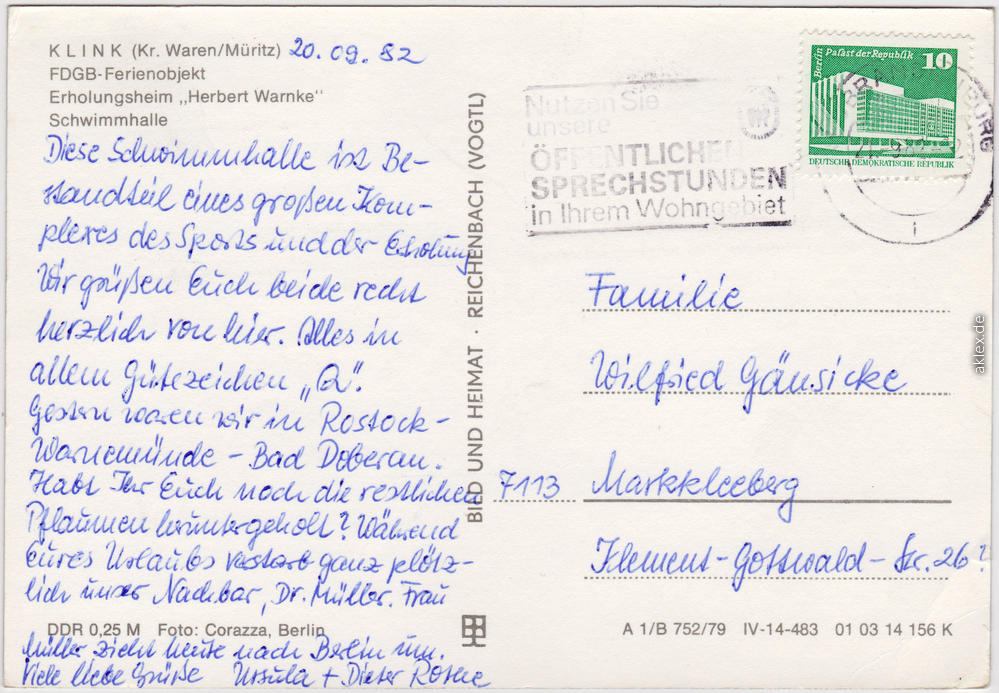 KLINK (Kr. Waren/Müritz) 20.09.82
FDGB-Ferienobjekt
Erholungsheim „Herbert Warnke"
Schwimmhalle
Diese Schwimmhalle ist Be-
standteil eines großen Kom-
plexes des Sports und der Erholung
Wir grüßen Euch beide recht
herzlich von hier. Alles in
allem Gütezeichen „Q".
Gestern waren wir in Rostock-
Warnemünde - Bad Doberan.
Habt Ihr Euch noch die restlichen
Pflaumen heruntergeholt? Während
Eures Urlaubs verstarb ganz plötz-
lich unser Nachbar, Dr. Müller. Frau
Müller zieht heute nach Berlin um.
Viele liebe Grüße Ursula + Dieter Rothe
DDR 0,25 M Foto: Corazza, Berlin
BILD UND HEIMAT · REICHENBACH (VOGTL)
Nutzen Sie
unsere
ÖFFENTLICHEN
SPRECHSTUNDEN
in Ihrem Wohngebiet
Berlin Palast der Republik 10
DEUTSCHE DEMOKRATISCHE REPUBLIK
Familie
Wilfried Gänsicke
7113 Markkleeberg
Klement-Gottwald-Str. 26?
A 1/B 752/79 IV-14-483 01 03 14 156 K
aklex.de